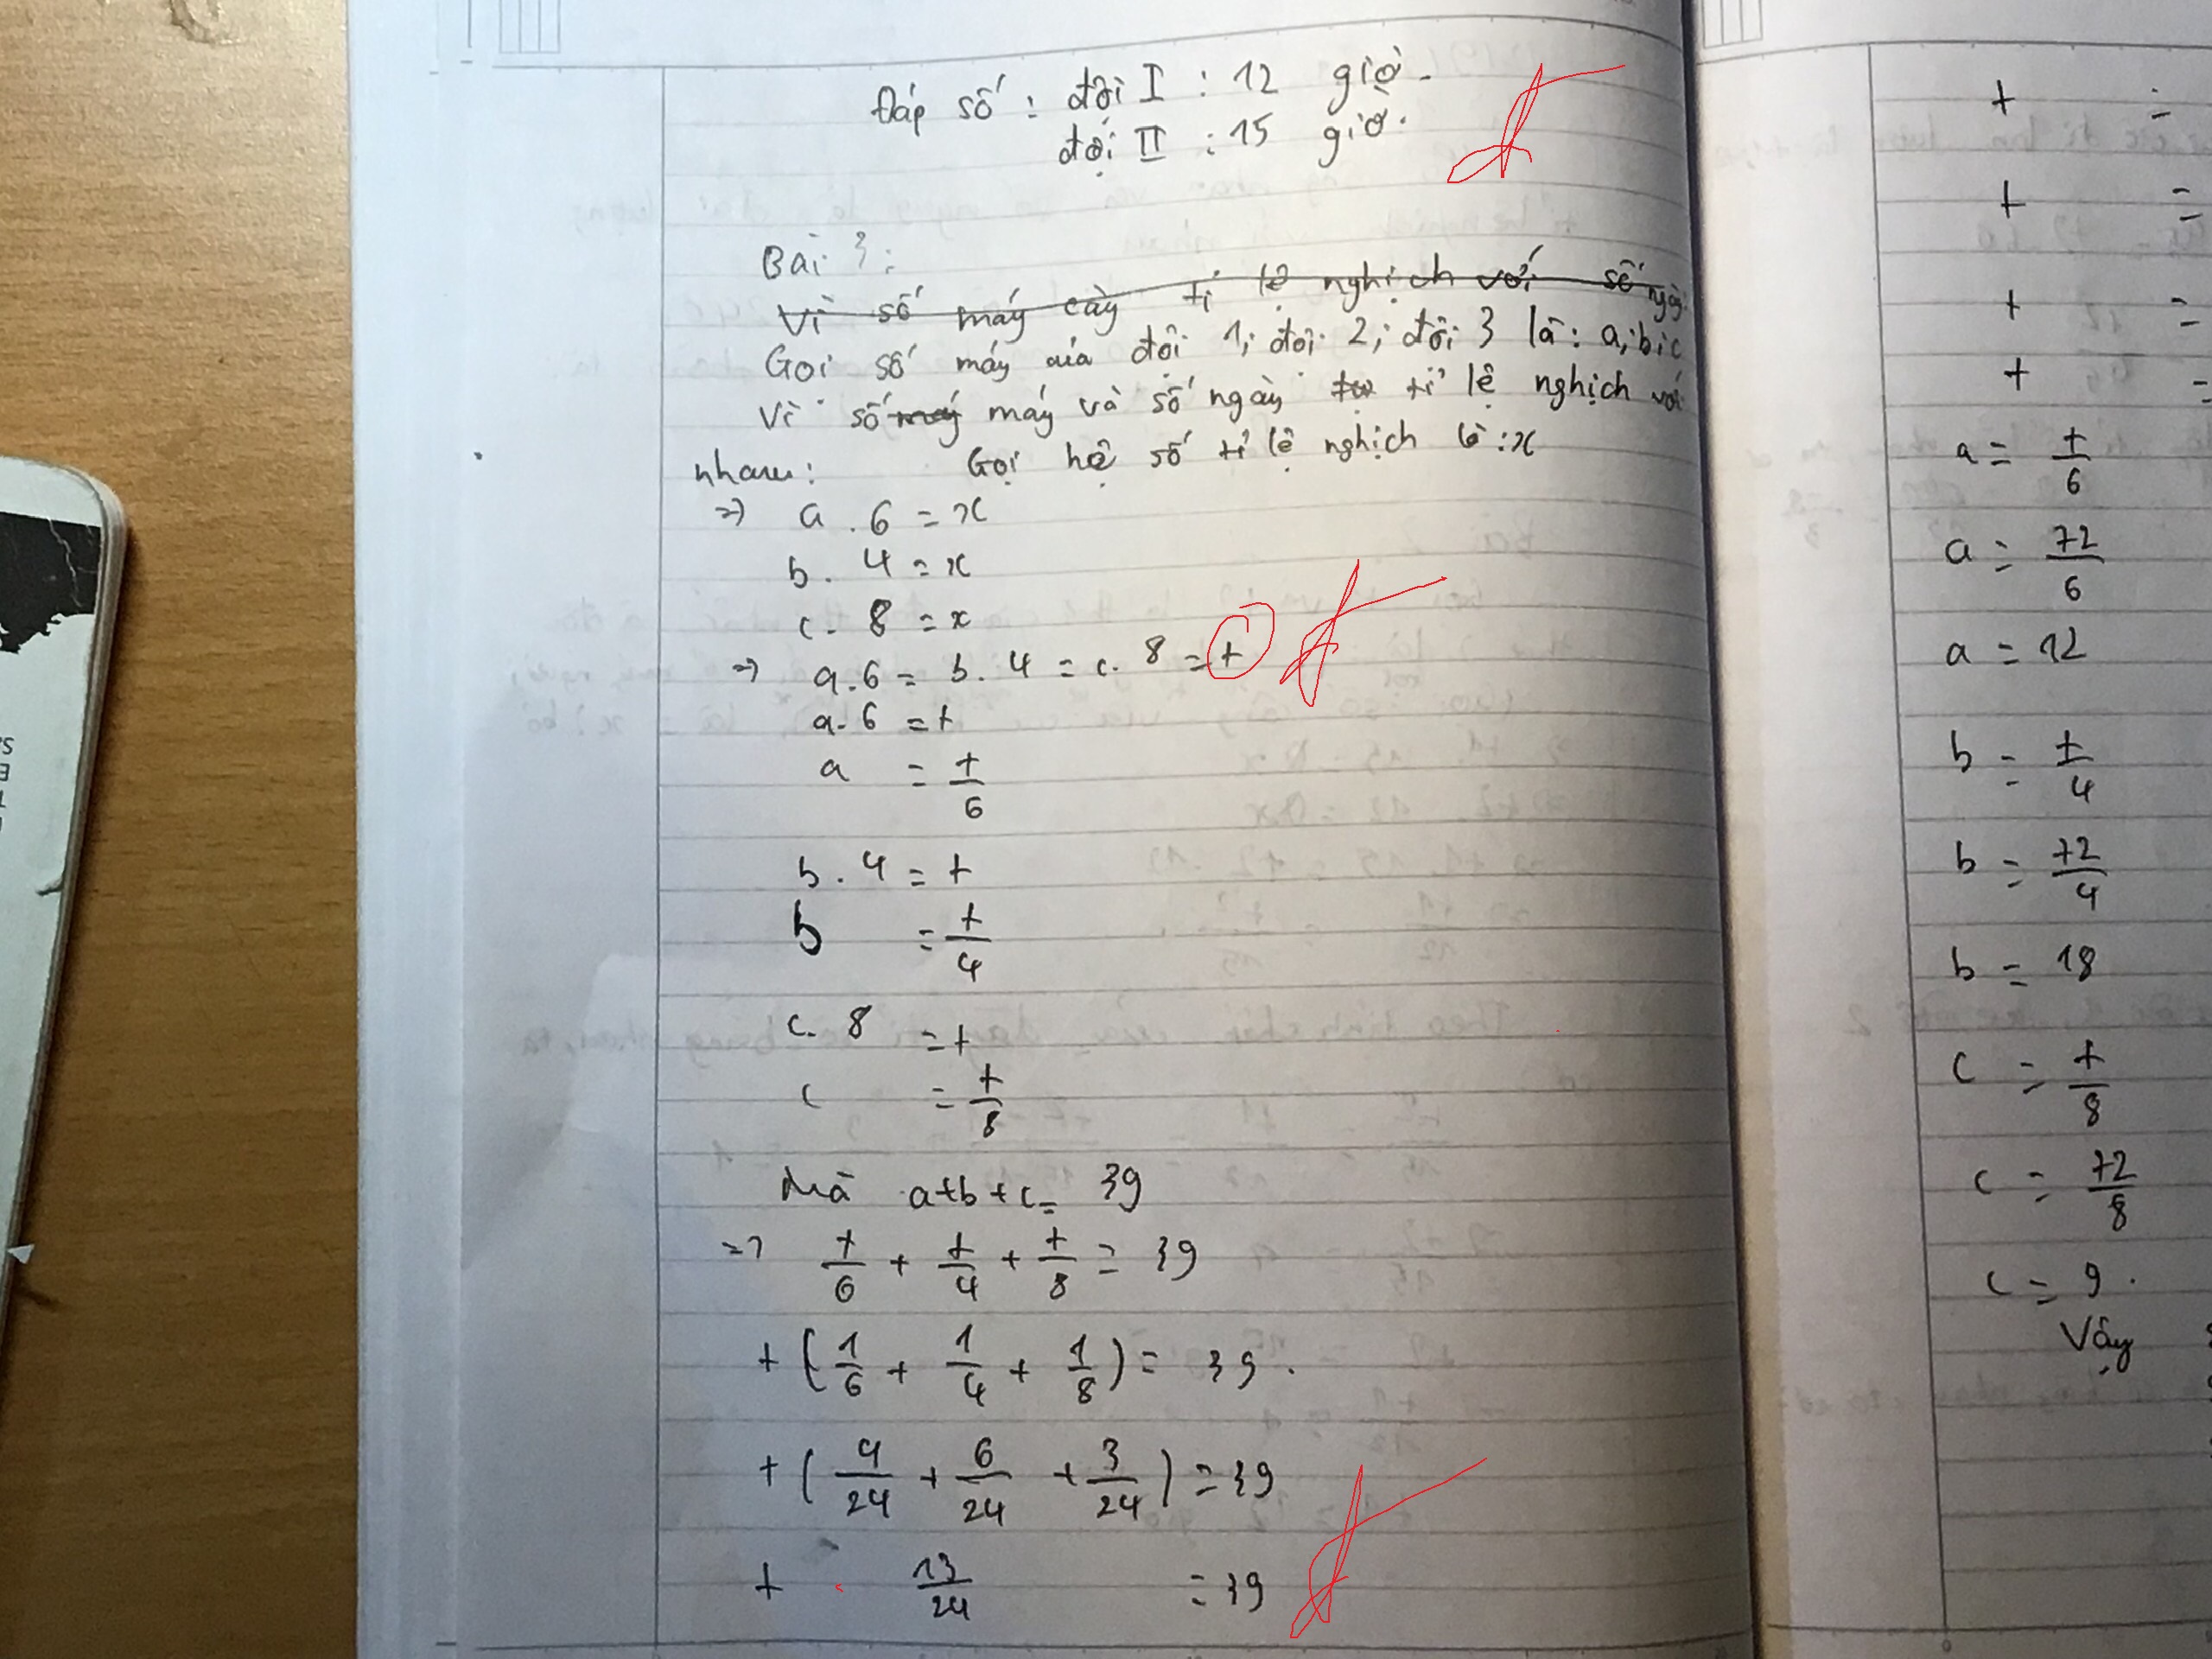 Đáp số : đội I : 12 giờ.
đội II : 15 giờ.
Bài 3 :
Vì số máy cày tỉ lệ nghịch với số ngày
Gọi số máy của đội 1; đội 2; đội 3 là : a; b; c
Vì số máy máy và số ngày tỉ lệ nghịch với
nhau : Gọi hệ số tỉ lệ nghịch là : x
=> a . 6 = x
b . 4 = x
c . 8 = x
=> a . 6 = b . 4 = c . 8 = t
a . 6 = t
a = t/6
b . 4 = t
b = t/4
c . 8 = t
c = t/8
Mà a+b+c = 39
=> t/6 + t/4 + t/8 = 39
t (1/6 + 1/4 + 1/8) = 39.
t (4/24 + 6/24 + 3/24) = 39
t . 13/24 = 39
t =
t =
t =
t =
a = t/6
a = 72/6
a = 12
b = t/4
b = 72/4
b = 18
c = t/8
c = 72/8
c = 9.
Vậy